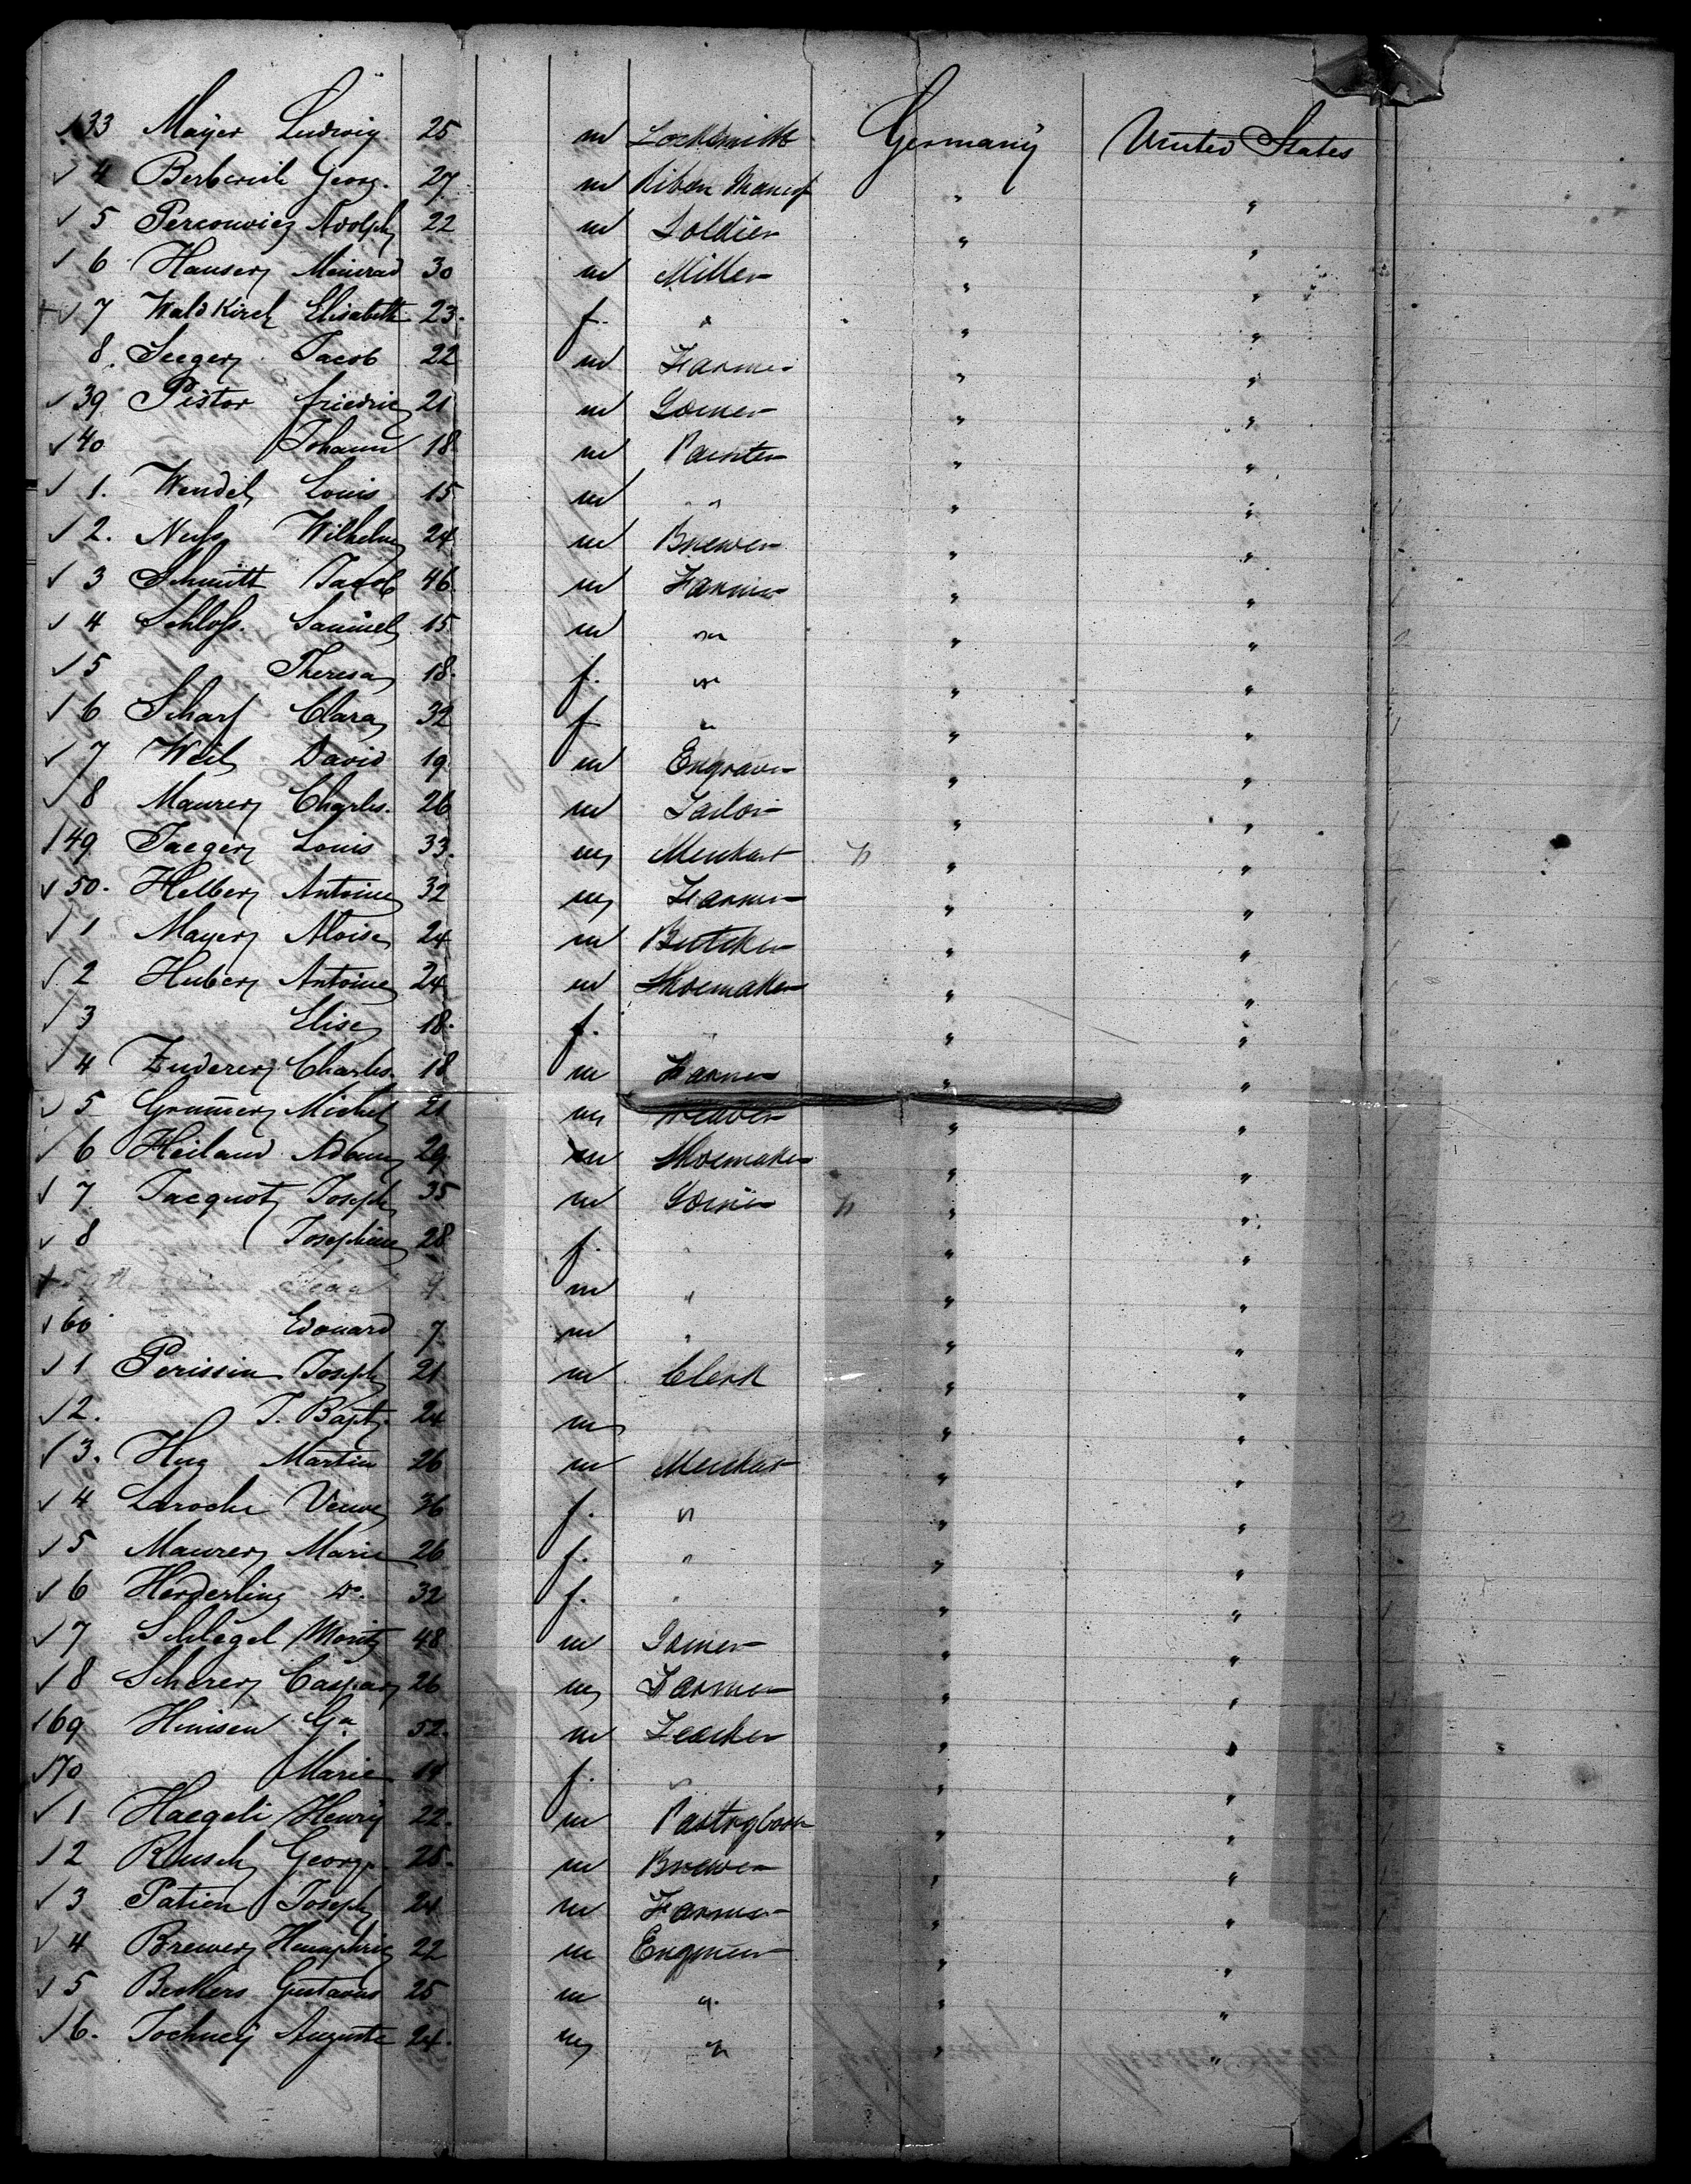 133 Mayer Ludwig 25 m Locksmith Germany United States
4 Berberich Georg. 27 m Riban Manuf " "
5 Percouwicz Adolph 22 m Soldier " "
6 Hauser Meinrad 30 m Miller " "
7 Waldkirch Elisabeth 23. f. " " "
8. Seeger Jacob 22 m Farmer " "
39 Pistor friedric 21 m Joiner " "
40 Johann 18 m Painter " "
1. Wendel Louis 15 m " " "
2. Nuss Wilhelm 24 m Brewer " "
3 Schmitt Jacob 46 m Farmer " "
4 Schloss. Samuel 15 m " " "
5 Theresa 18. f. " " "
6 Scharf Clara 32 f " " "
7 Weil David 19 m Engraver " "
8 Maurer Charles. 26 m Tailor " "
149 Jaeger Louis 33. m Merchant " "
50. Helber Antoine 32 m Farmer " "
1 Mayer Aloise 24 m Butcher " "
2 Huber Antoine 24 m Shoemaker " "
3 Elise 18. f. " " "
4 Zuderer Charles. 18 m Farmer " "
5 Michel 21 m Weaver " "
6 Heiland Adam 29 m Shoemaker " "
7 Jacquot Joseph 35 m Joiner " "
8 Josephine 28 f. " " "
m " " "
60 Edouard 7. m " " "
1 Perissin Joseph 21 m Clerk " "
2. J. Bapt. 24 m " " "
3. Hug Martin 26 m Merchant " "
4 Laroche Veuve 36 f. " " "
5 Maurer Marie 26 f. " " "
6 Herderling do. 32 f. " " "
7 Schlegel Moritz 48 m Joiner " "
8 Scherer Caspar 26 m Farmer " "
169 Hinisen Ga 52. m Teacher " "
170 Marie f. " " "
1 Haegeli Henry 22. m Pastrycook " "
2 Rusch Georg. 25. m Brewer " "
3 Patien Joseph 21 m Farmer " "
4 Brewer Humphrie 22 m Engineer " "
5 Beckers Gustavus 25 m " " "
6. Auguste 24. m " " "